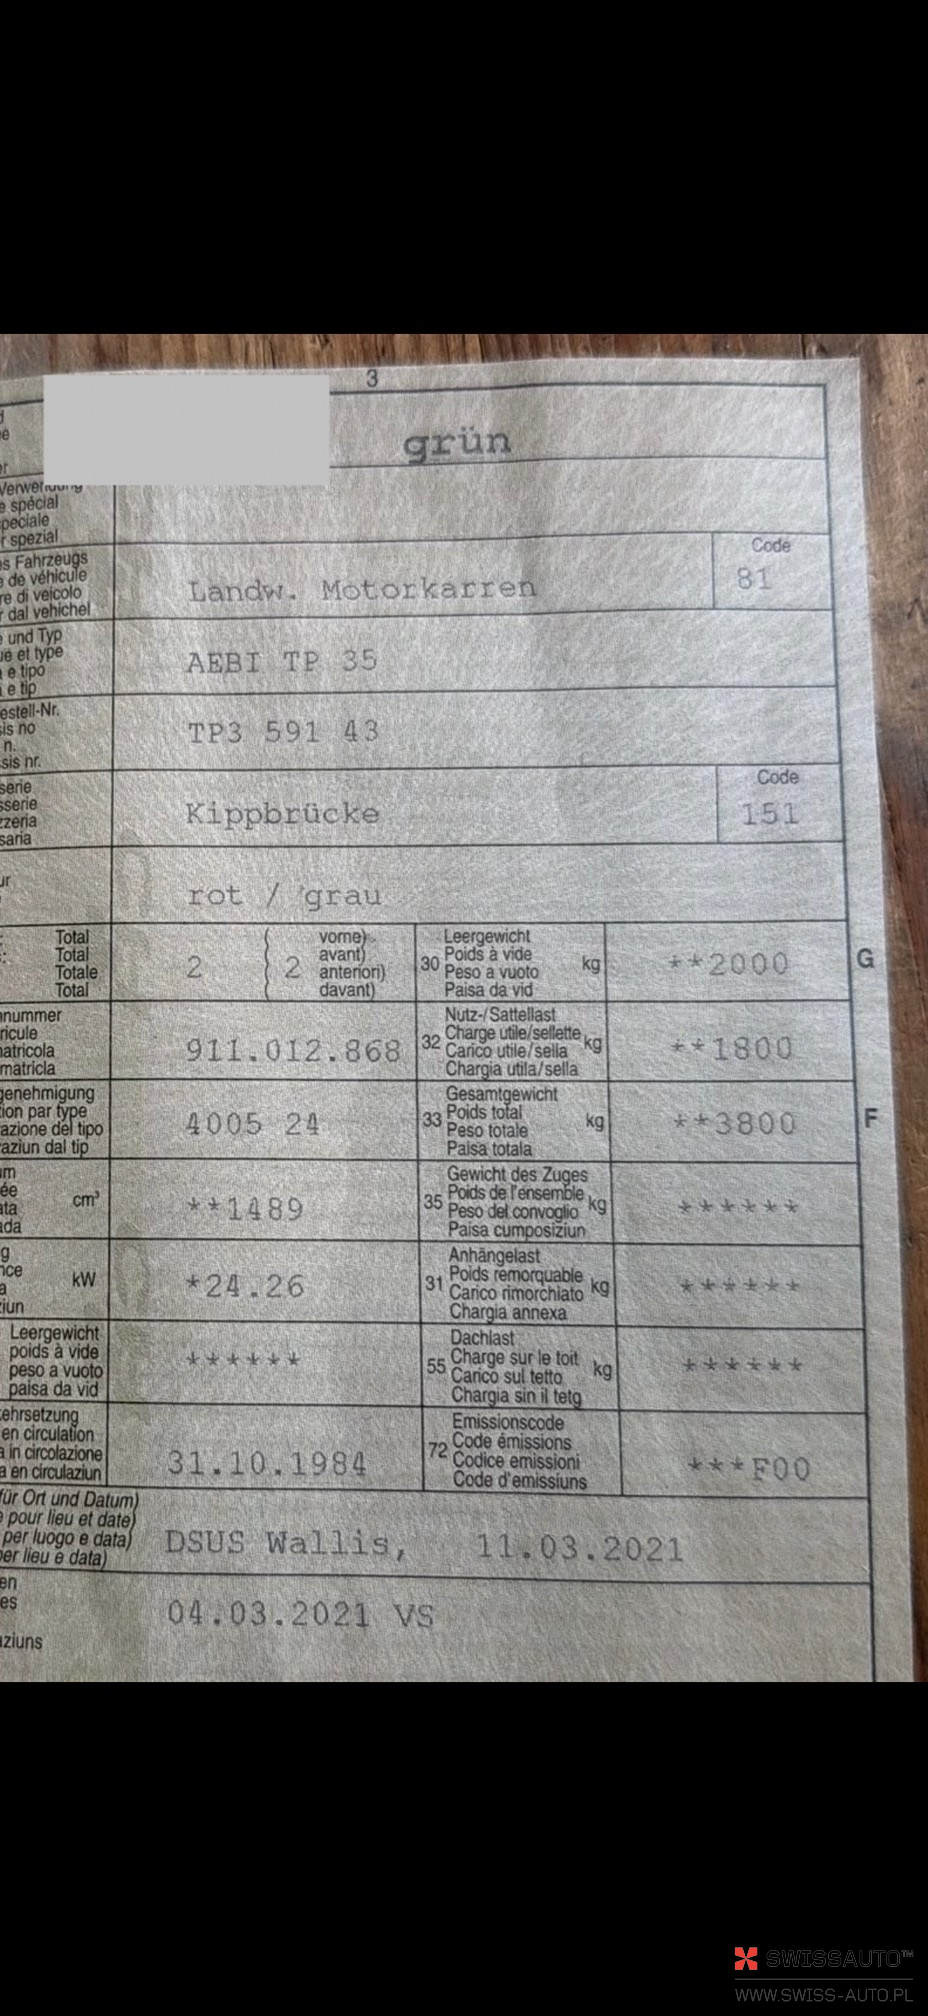 3
grün
Verwendung
e spécial
speciale
r spezial
s Fahrzeugs
e de véhicule
re di veicolo
r dal vehichel
Landw. Motorkarren
Code
81
e und Typ
ue et type
a e tipo
i e tip
AEBI TP 35
estell-Nr.
sis no
n.
sis nr.
TP3 591 43
serie
sserie
zzeria
saria
Kippbrücke
Code
151
ur
rot / grau
Total
Total
Totale
Total
2
2
vorne)
avant)
anteriori)
davant)
30
Leergewicht
Poids à vide
Peso a vuoto
Paisa da vid
kg
**2000
G
nnummer
ricule
matricola
matricla
911.012.868
32
Nutz-/Sattellast
Charge utile/sellette
Carico utile/sella
Chargia utila/sella
kg
**1800
genehmigung
tion par type
azione del tipo
aziun dal tip
4005 24
33
Gesamtgewicht
Poids total
Peso totale
Paisa totala
kg
**3800
F
m
ée
ata
ada
cm³
**1489
35
Gewicht des Zuges
Poids de l'ensemble
Peso del convoglio
Paisa cumposiziun
kg
******
g
nce
a
iun
kW
*24.26
31
Anhängelast
Poids remorquable
Carico rimorchiato
Chargia annexa
kg
******
Leergewicht
poids à vide
peso a vuoto
paisa da vid
******
55
Dachlast
Charge sur le toit
Carico sul tetto
Chargia sin il tetg
kg
******
ehrsetzung
en circulation
a in circolazione
a en circulaziun
31.10.1984
72
Emissionscode
Code émissions
Codice emissioni
Code d'emissiuns
***F00
für Ort und Datum)
e pour lieu et date)
per luogo e data)
per lieu e data)
DSUS Wallis, 11.03.2021
en
es
aziuns
04.03.2021 VS
SWISSAUTO™
WWW.SWISS-AUTO.PL